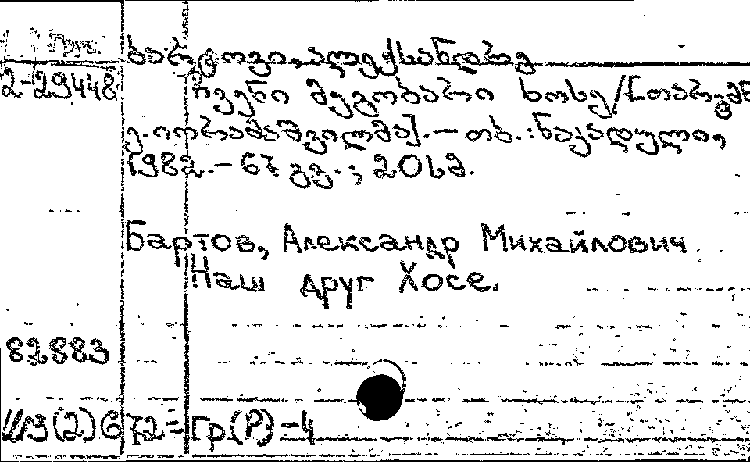 ბარტოვი, ალექსანდრე
2-29448 ჩვენი მეგობარი ხოსე/[თარგმნ
ე. იორამაშვილმა]. — თბ.: ნაკადული,
1982. – 67 გვ.; 20 სმ.
Бартов, Александр Михайлович
Наш друг Хосе.
82883
Ш3(2)672=Гр(Р)-4